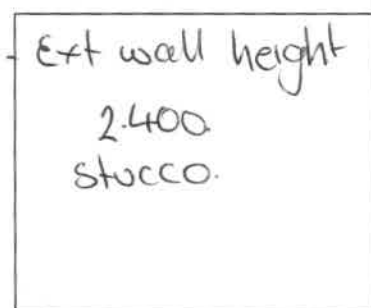 - Ext wall height
2.400.
stucco.